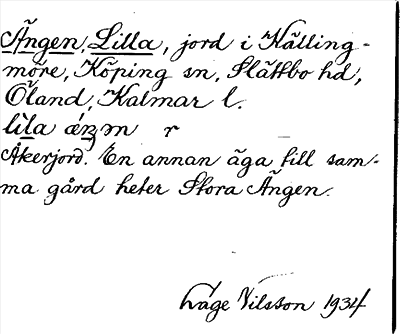 Ängen, Lilla, jord i Källing-
möre, Köping sn, Slättbo hd,
Öland, Kalmar l.
lila r
Åkerjord. En annan äga till sam-
ma gård heter Stora Ängen.
Håge Nilsson 1934